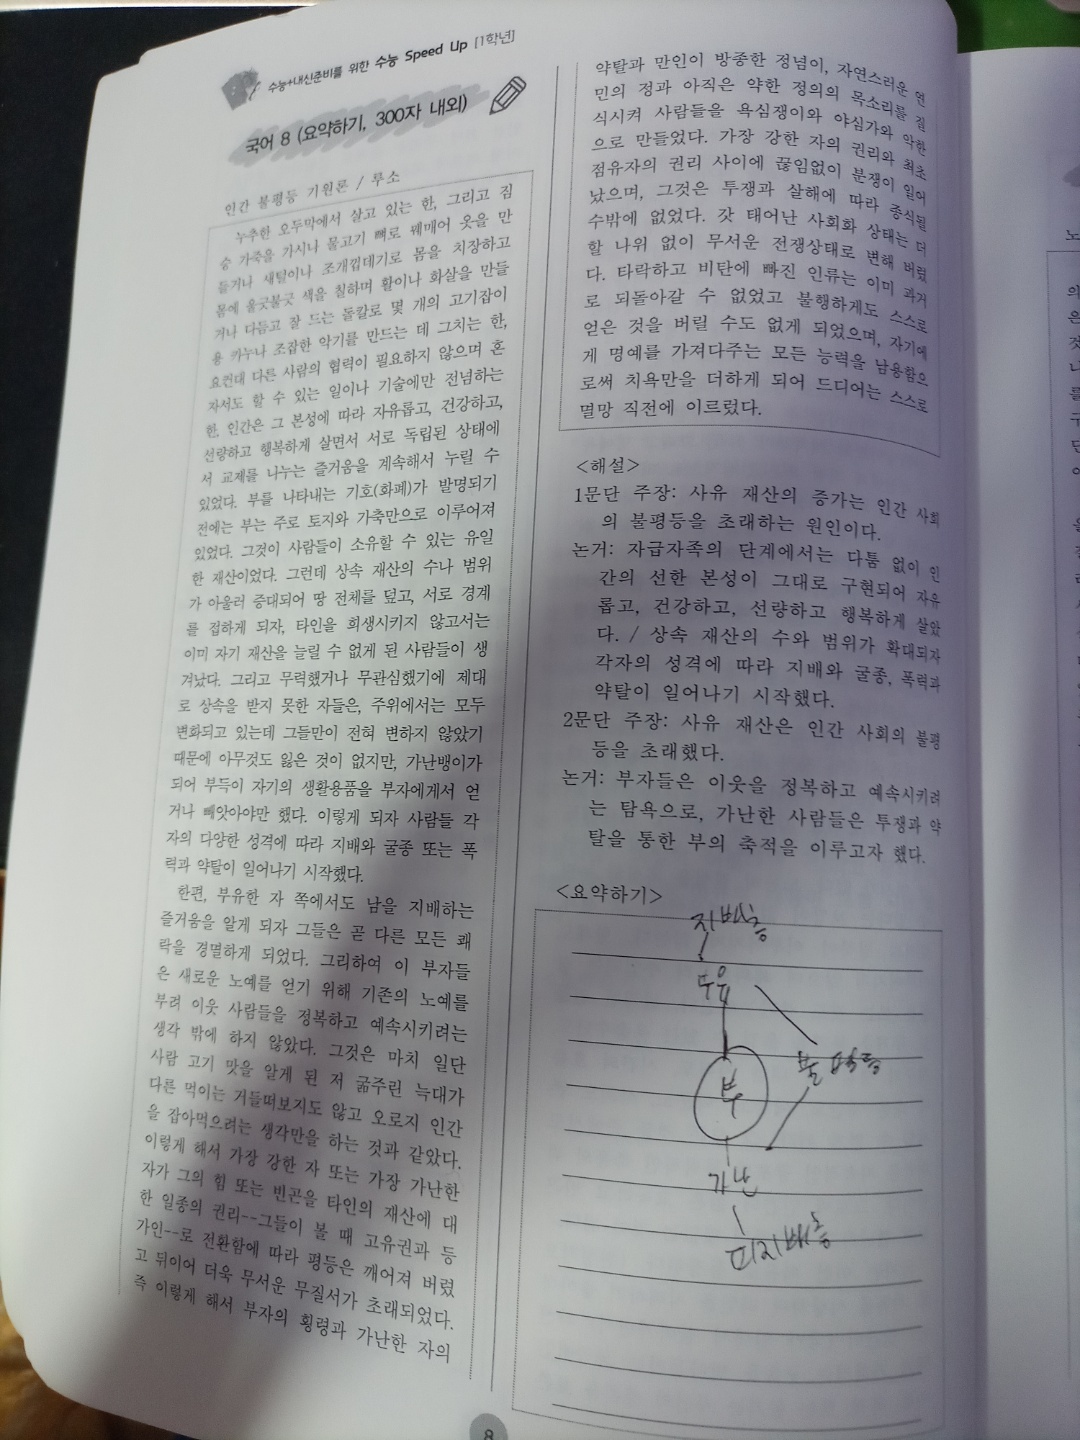 수능+내신준비를 위한 수능 Speed Up [1학년]
국어 8 (요약하기, 300자 내외)
인간 불평등 기원론 / 루소
누추한 오두막에서 살고 있는 한, 그리고 짐
승 가죽을 가시나 물고기 뼈로 꿰매어 옷을 만
들거나 새털이나 조개껍데기로 몸을 치장하고
몸에 울긋불긋 색을 칠하며 활이나 화살을 만들
거나 다듬고 잘 드는 돌칼로 몇 개의 고기잡이
용 카누나 조잡한 악기를 만드는 데 그치는 한,
요컨대 다른 사람의 협력이 필요하지 않으며 혼
자서도 할 수 있는 일이나 기술에만 전념하는
한, 인간은 그 본성에 따라 자유롭고, 건강하고,
선량하고 행복하게 살면서 서로 독립된 상태에
서 교제를 나누는 즐거움을 계속해서 누릴 수
있었다. 부를 나타내는 기호(화폐)가 발명되기
전에는 부는 주로 토지와 가축만으로 이루어져
있었다. 그것이 사람들이 소유할 수 있는 유일
한 재산이었다. 그런데 상속 재산의 수나 범위
가 아울러 증대되어 땅 전체를 덮고, 서로 경계
를 접하게 되자, 타인을 희생시키지 않고서는
이미 자기 재산을 늘릴 수 없게 된 사람들이 생
겨났다. 그리고 무력했거나 무관심했기에 제대
로 상속을 받지 못한 자들은, 주위에서는 모두
변화되고 있는데 그들만이 전혀 변하지 않았기
때문에 아무것도 잃은 것이 없지만, 가난뱅이가
되어 부득이 자기의 생활용품을 부자에게서 얻
거나 빼앗아야만 했다. 이렇게 되자 사람들 각
자의 다양한 성격에 따라 지배와 굴종 또는 폭
력과 약탈이 일어나기 시작했다.
한편, 부유한 자 쪽에서도 남을 지배하는
즐거움을 알게 되자 그들은 곧 다른 모든 쾌
락을 경멸하게 되었다. 그리하여 이 부자들
은 새로운 노예를 얻기 위해 기존의 노예를
부려 이웃 사람들을 정복하고 예속시키려는
생각 밖에 하지 않았다. 그것은 마치 일단
사람 고기 맛을 알게 된 저 굶주린 늑대가
다른 먹이는 거들떠보지도 않고 오로지 인간
을 잡아먹으려는 생각만을 하는 것과 같았다.
이렇게 해서 가장 강한 자 또는 가장 가난한
자가 그의 힘 또는 빈곤을 타인의 재산에 대
한 일종의 권리--그들이 볼 때 고유권과 등
가인--로 전환함에 따라 평등은 깨어져 버렸
고 뒤이어 더욱 무서운 무질서가 초래되었다.
즉 이렇게 해서 부자의 횡령과 가난한 자의
약탈과 만인이 방종한 정념이, 자연스러운 연
민의 정과 아직은 약한 정의의 목소리를 질
식시켜 사람들을 욕심쟁이와 야심가와 악한
으로 만들었다. 가장 강한 자의 권리와 최초
점유자의 권리 사이에 끊임없이 분쟁이 일어
났으며, 그것은 투쟁과 살해에 따라 종식될
수밖에 없었다. 갓 태어난 사회화 상태는 더
할 나위 없이 무서운 전쟁상태로 변해 버렸
다. 타락하고 비탄에 빠진 인류는 이미 과거
로 되돌아갈 수 없었고 불행하게도 스스로
얻은 것을 버릴 수도 없게 되었으며, 자기에
게 명예를 가져다주는 모든 능력을 남용함으
로써 치욕만을 더하게 되어 드디어는 스스로
멸망 직전에 이르렀다.
<해설>
1문단 주장: 사유 재산의 증가는 인간 사회
의 불평등을 초래하는 원인이다.
논거: 자급자족의 단계에서는 다툼 없이 인
간의 선한 본성이 그대로 구현되어 자유
롭고, 건강하고, 선량하고 행복하게 살았
다. / 상속 재산의 수와 범위가 확대되자
각자의 성격에 따라 지배와 굴종, 폭력과
약탈이 일어나기 시작했다.
2문단 주장: 사유 재산은 인간 사회의 불평
등을 초래했다.
논거: 부자들은 이웃을 정복하고 예속시키려
는 탐욕으로, 가난한 사람들은 투쟁과 약
탈을 통한 부의 축적을 이루고자 했다.
<요약하기>
지배층
부유
부
불평등
가난
피지배층
8